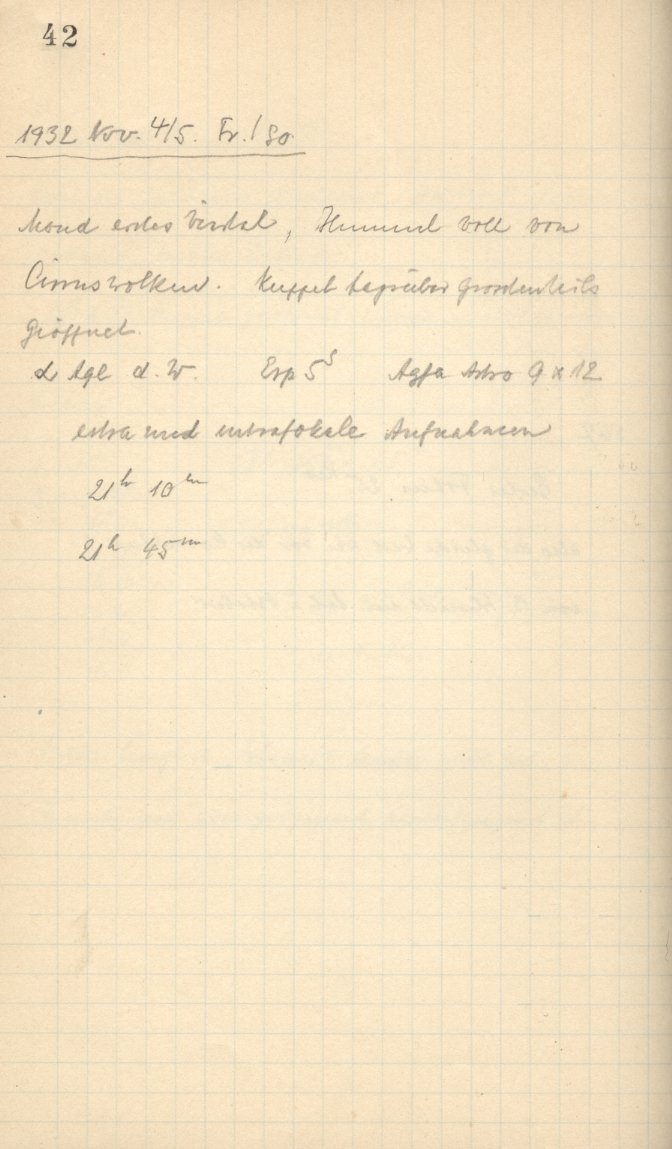 42
1932 Nov. 4/5. Fr. / So.
Mond erstes Viertel, Himmel voll von
Cirruswolken. Kuppel tagsüber grösstenteils
geöffnet.
α Aql d. W. Exp 5ˢ Agfa Astro 9 x 12
extra und intrafokale Aufnahmen
21ʰ 10ᵐ
21ʰ 45ᵐ